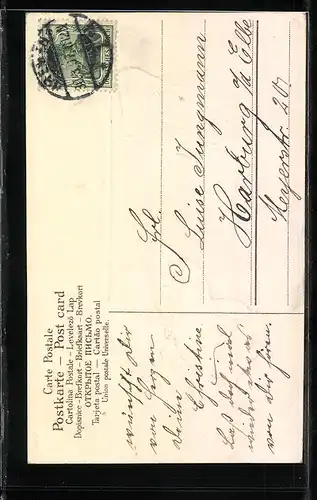 Carte Postale
Postkarte – Post card
Cartolina Postale – Levelező Lap
Dopisnice – Brefkort – Briefkaart – Brevkort
ОТКРЫТОЕ ПИСЬМО.
Tarjeta postal – Cartão postal
Union postale Universelle.
Frl.
Luise Jungmann
Harburg a/d Elbe
Meyerstr. 20.
wünscht Dir
von
Deine
Christine
Laß doch mal
wieder etwas
von Dir hören.